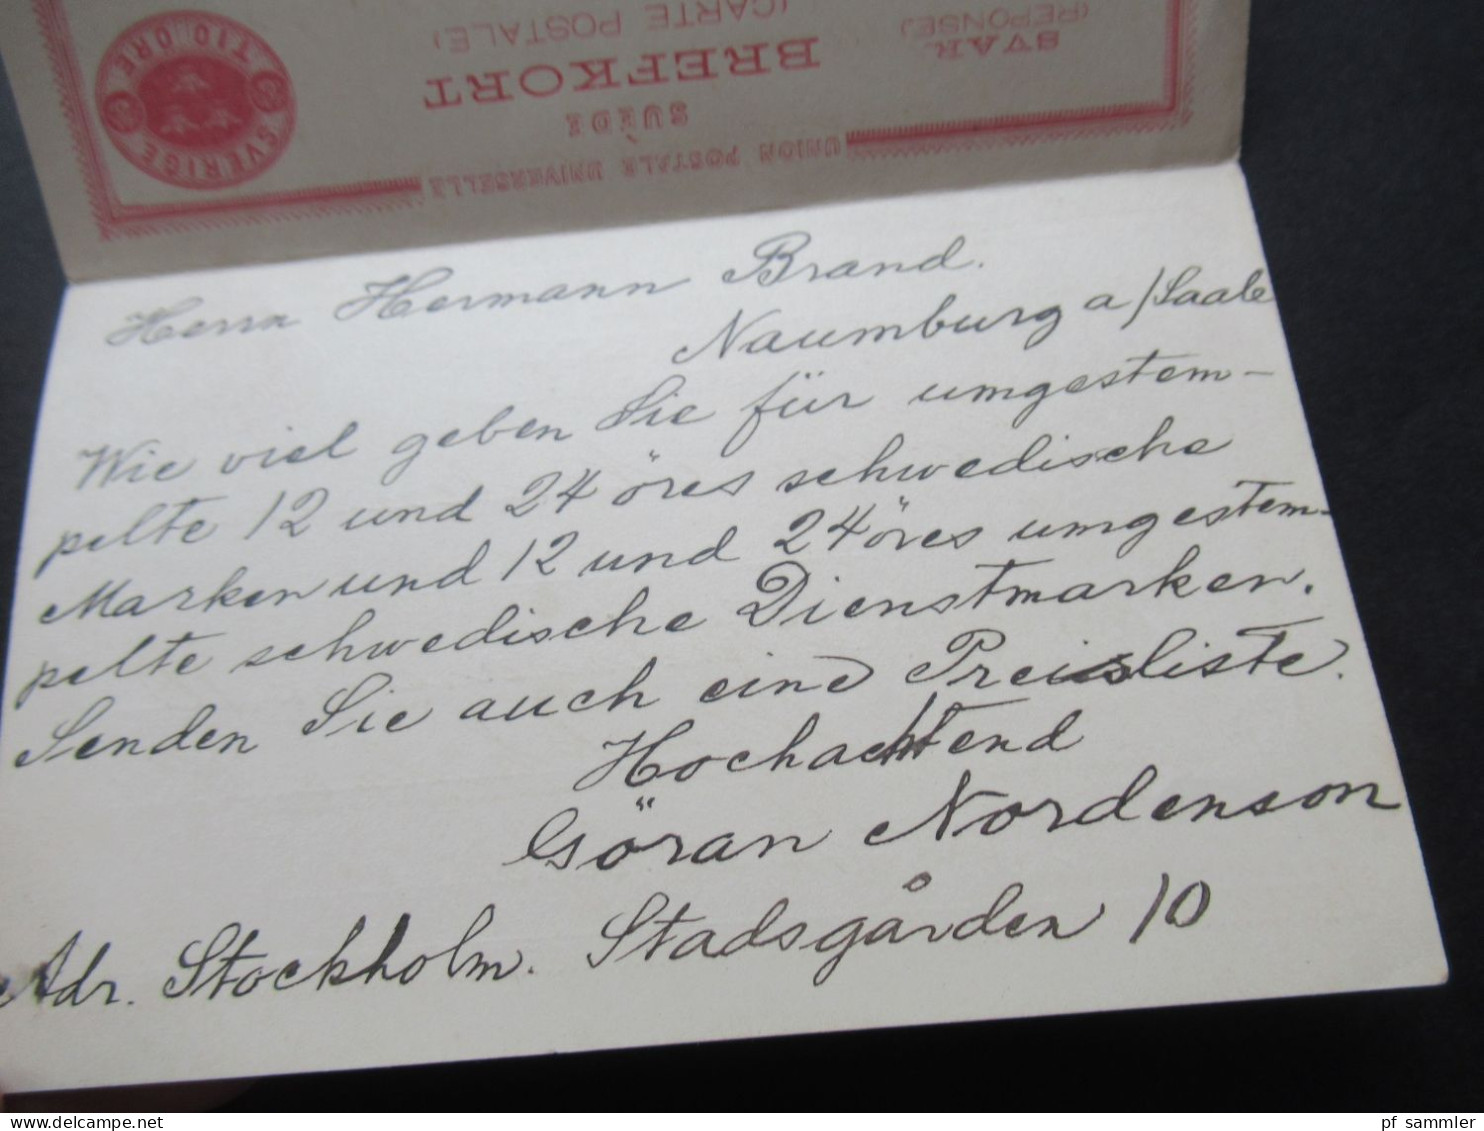 SVAR
(REPONSE)
(CARTE POSTALE)
BREFKORT
SUÈDE
UNION POSTALE UNIVERSELLE
SVERIGE
TIO ÖRE
Herrn Hermann Brand.
Naumburg a/Saale
Wie viel geben Sie für umgestem-
pelte 12 und 24 öres schwedische
Marken und 12 und 24 öres umgestem-
pelte schwedische Dienstmarken.
Senden Sie auch eine Preisliste.
Hochachtend
Göran Nordenson
Adr. Stockholm. Stadsgården 10
pf_sammler
delcampe.net